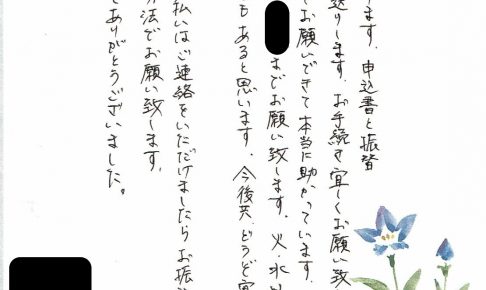 ます、申込書と振替
送りします。お手続き宜しくお願い致
お願いできて本当に助かっています。
までお願い致します。火・水
もあると思います。今後共、どうぞ宜
払いはご連絡をいただけましたらお振
方法でお願い致します。
ありがとうございました。